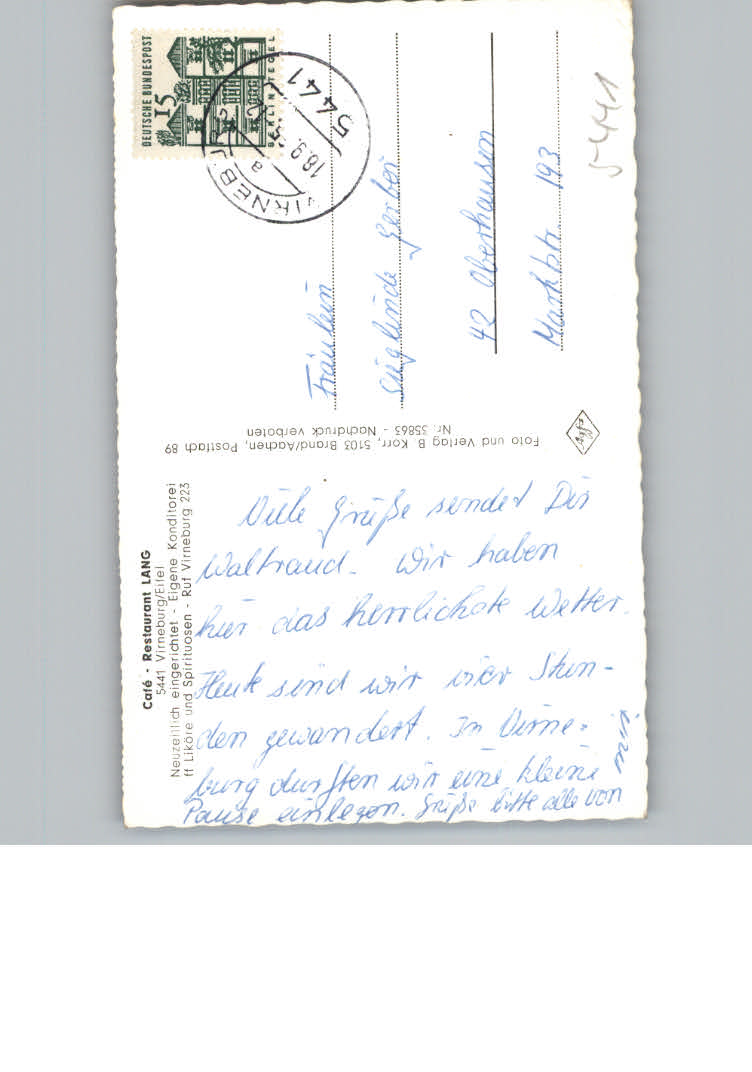 Café - Restaurant LANG
5441 Virneburg/Eifel
Neuzeitlich eingerichtet - Eigene Konditorei
ff Liköre und Spirituosen - Ruf Virneburg 223
Viele Grüße sendet Dir
Waltraud. Wir haben
hier das herrlichste Wetter.
Heute sind wir vier Stun-
den gewandert. In Virne-
burg durften wir eine kleine
Pause einlegen. Grüße bitte alle von
mir
Foto und Verlag B. Korr, 5103 Brand/Aachen, Postfach 89
Nr. 35863 - Nachdruck verboten
DEUTSCHE BUNDESPOST
15
BERLIN-TEGEL
5441
18.9.
a
5441
Fräulein
Sieglinde Gerber
42 Oberhausen
Marktstr 193